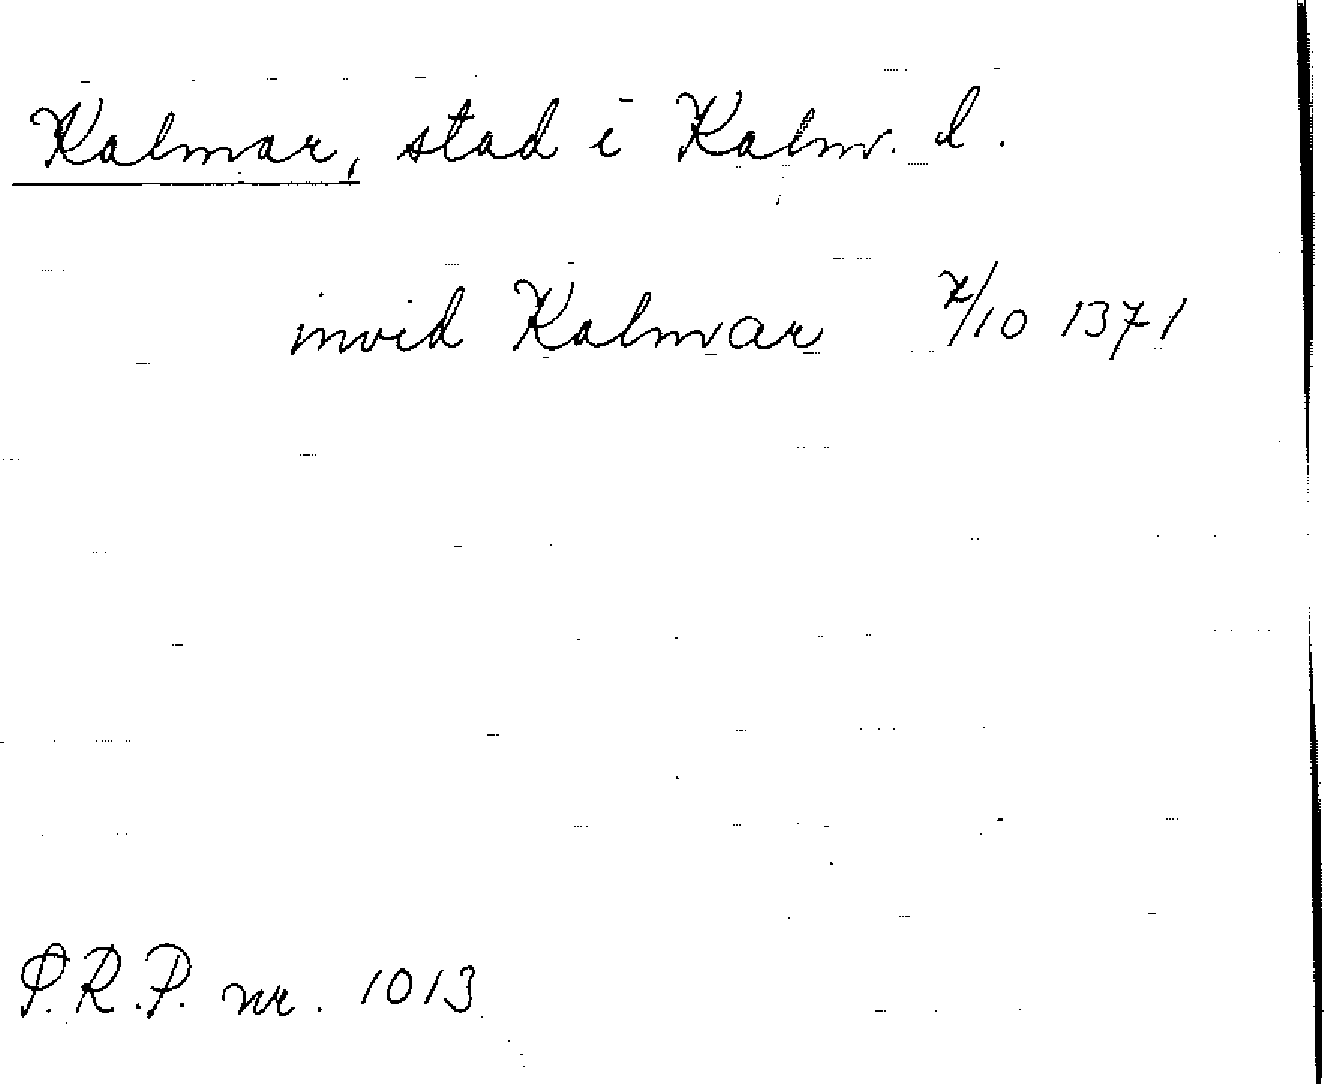 Kalmar, stad i Kalm. l.
invid Kalmar 7/10 1371
S.R.P. nr. 1013